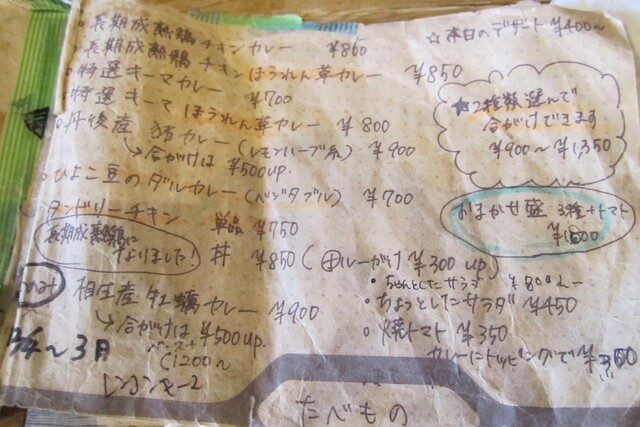 長期成熟鶏チキンカレー ¥800
長期成熟鶏チキンほうれん草カレー ¥850
特選キーマカレー ¥700
特選キーマほうれん草カレー ¥800
丹後産 猪カレー(レモンハーブ系) ¥900
→合がけは ¥500up.
ひよこ豆のダルカレー(ベジタブル) ¥700
タンドリーチキン 単品 ¥750
長期成熟鶏になりました! 丼 ¥850(⊕ルーがけ¥300 up)
相生産 牡蠣カレー ¥900
→合がけは ¥500up.
~3月
C1200~
たべもの
☆本日のデザート ¥400~
2種類選んで
合がけできます
¥900~¥1,350
おまかせ盛 3種+トマト
¥1500
・ちょっとしたサラダ ¥450
○焼トマト ¥350
カレーにトッピングで ¥300